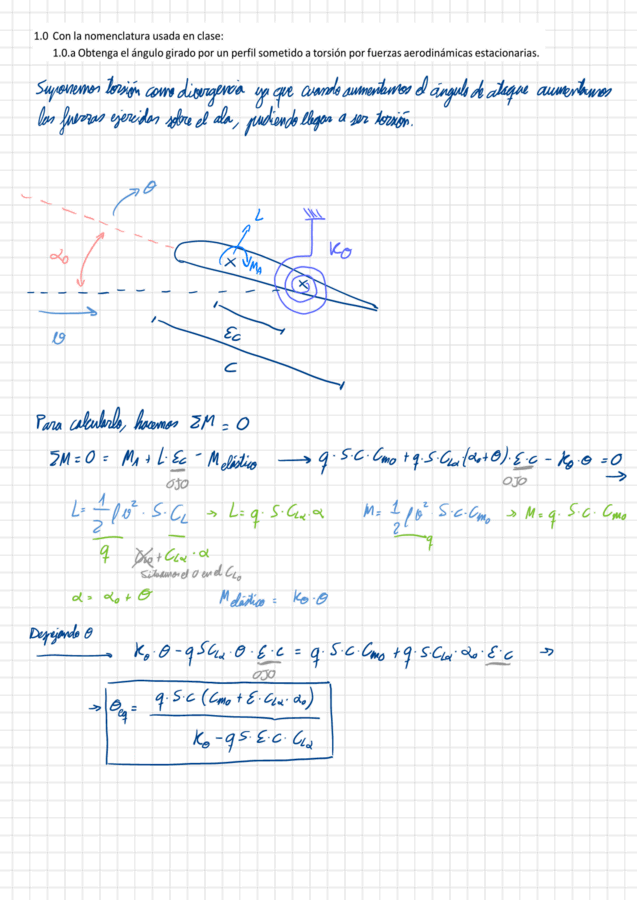 1.0 Con la nomenclatura usada en clase:
1.0.a Obtenga el ángulo girado por un perfil sometido a torsión por fuerzas aerodinámicas estacionarias.
Suponemos torsión como divergencia ya que cuando aumentamos el ángulo de ataque aumentamos
las fuerzas ejercidas sobre el ala, pudiendo llegar a ser torsión.
θ
L
Kθ
α₀
x
M_A
x
υ
εc
c
Para calcularlo, hacemos ΣM = 0
ΣM = 0 = M_A + L · εc − M elástico → q · S · C · C_m0 + q · S · C_Lα (α₀ + θ) · ε · c − Kθ · θ = 0 →
OJO OJO
L = 1/2 ρ υ² · S · C_L → L = q · S · C_Lα · α M = 1/2 ρ υ² S · c · C_m0 → M = q · S · C · C_m0
q C_L0 + C_Lα · α q
Situamos el 0 en el C_L0
α = α₀ + θ M elástico = Kθ · θ
Despejando θ
→ Kθ · θ − q S C_Lα · θ · ε · c = q · S · C · C_m0 + q · S · C_Lα · α₀ · ε · c ⇒
OJO
⇒ θ_eq = q · S · c (C_m0 + ε · C_Lα · α₀) / Kθ − q S · ε · c · C_Lα